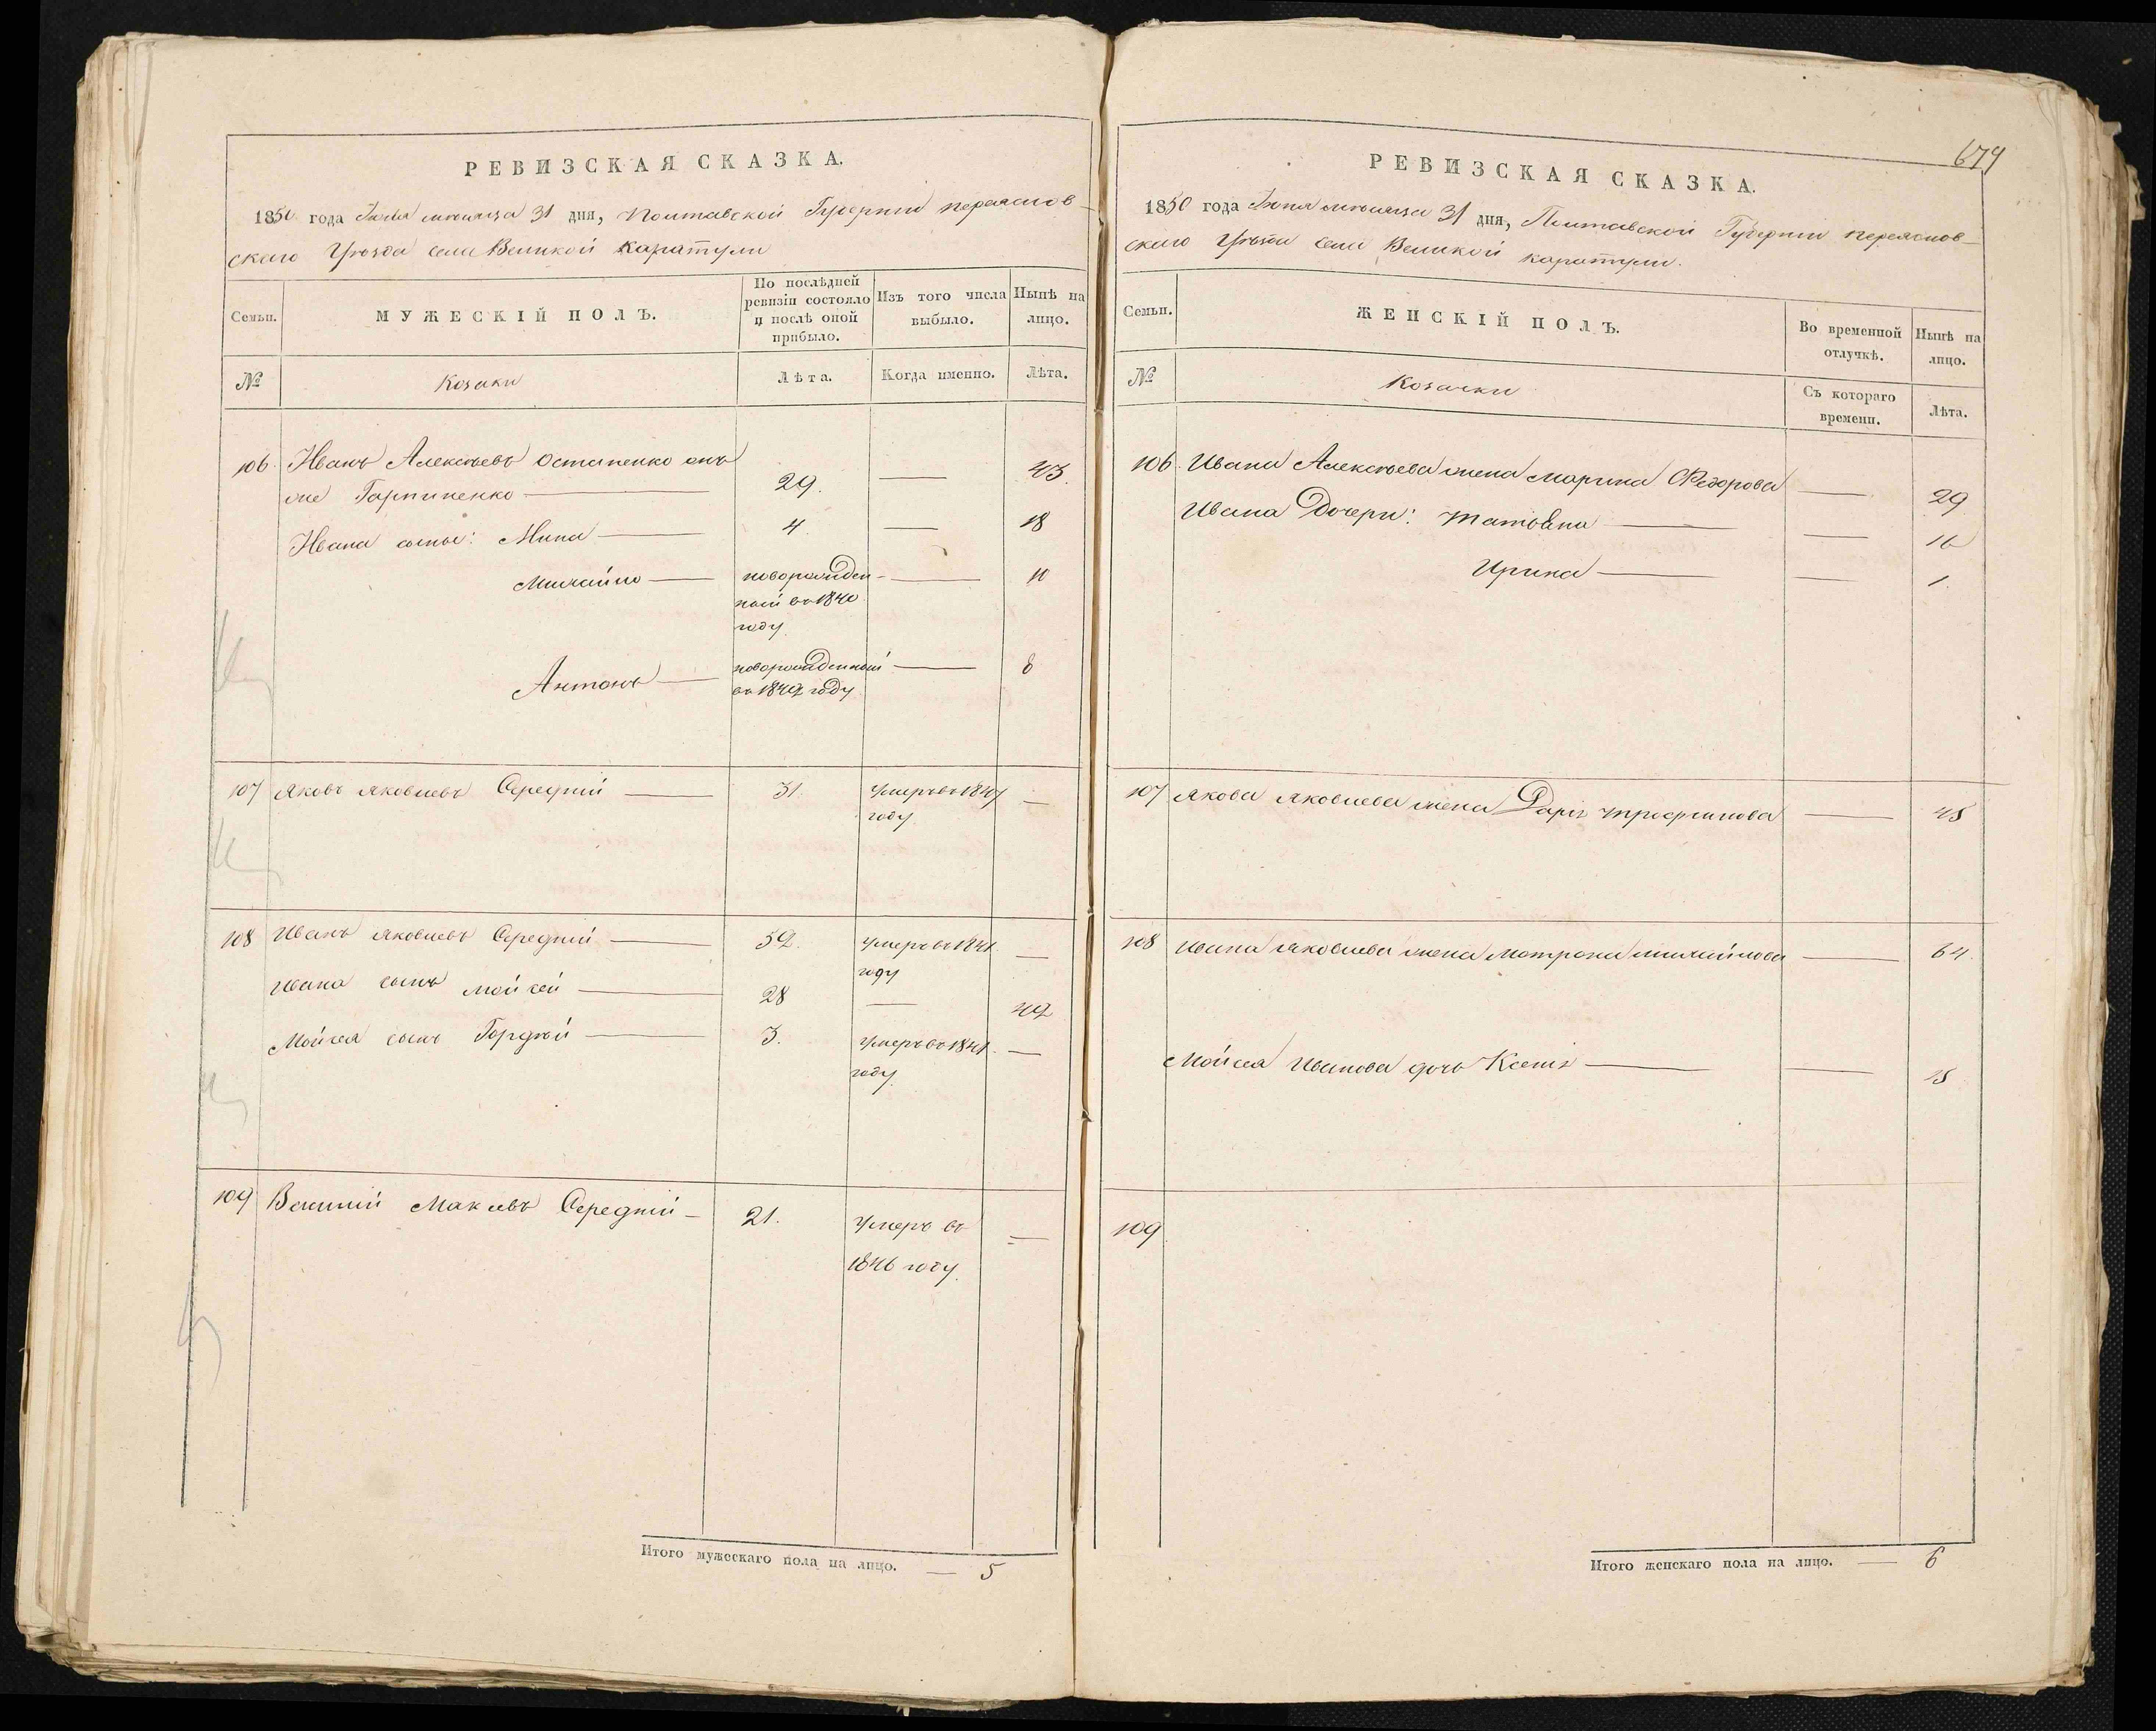 РЕВИЗСКАЯ СКАЗКА.
1850 года Іюля мѣсяца 31 дня, Полтавской Губерніи переяслов-
скаго Уѣзда села Великой Каратули
Семьи.
МУЖЕСКІЙ ПОЛЪ.
По послѣдней
ревизіи состояло
и послѣ оной
прибыло.
Изъ того числа
выбыло.
Нынѣ на
лицо.
№
Козаки
Лѣта.
Когда именно.
Лѣта.
106. Иванъ Алексѣевъ Остапенко онъ
же Гарпиненко — 29. — 43.
Ивана сыны: Мина — 4. — 18
Михайло — новорожден- — 10
ный въ 1840
году.
Антонъ — новорожденный — 8
въ 1842 году
107 Яковъ Яковлевъ Середній — 31. умеръ въ 1847 —
году
108 Иванъ Яковлевъ Середній — 52. умеръ въ 1841 —
году
Ивана сынъ Мойсей — 28 — 42
Мойсея сынъ Гордѣй — 3. умеръ въ 1841. —
году.
109 Василій Середній — 21. умеръ въ —
1846 году.
Итого мужескаго пола на лицо. — 5
679
РЕВИЗСКАЯ СКАЗКА.
1850 года Іюля мѣсяца 31 дня, Полтавской Губерніи переяслов-
скаго Уѣзда села Великой каратули.
Семьи.
ЖЕНСКІЙ ПОЛЪ.
Во временной
отлучкѣ.
Нынѣ на
лицо.
№
Козачки
Съ котораго
времени.
Лѣта.
106. Ивана Алексѣева жена Марина Федорова — 29
Ивана Дочери: Татьяна — — 16
Ирина — — 1.
107 Якова Яковлева жена Дарія Трофимова — 45
108 Ивана Яковлева жена Матрона Михайлова — 64.
Мойсея Иванова дочь Ксенія — — 15
109
Итого женскаго пола на лицо. — 6